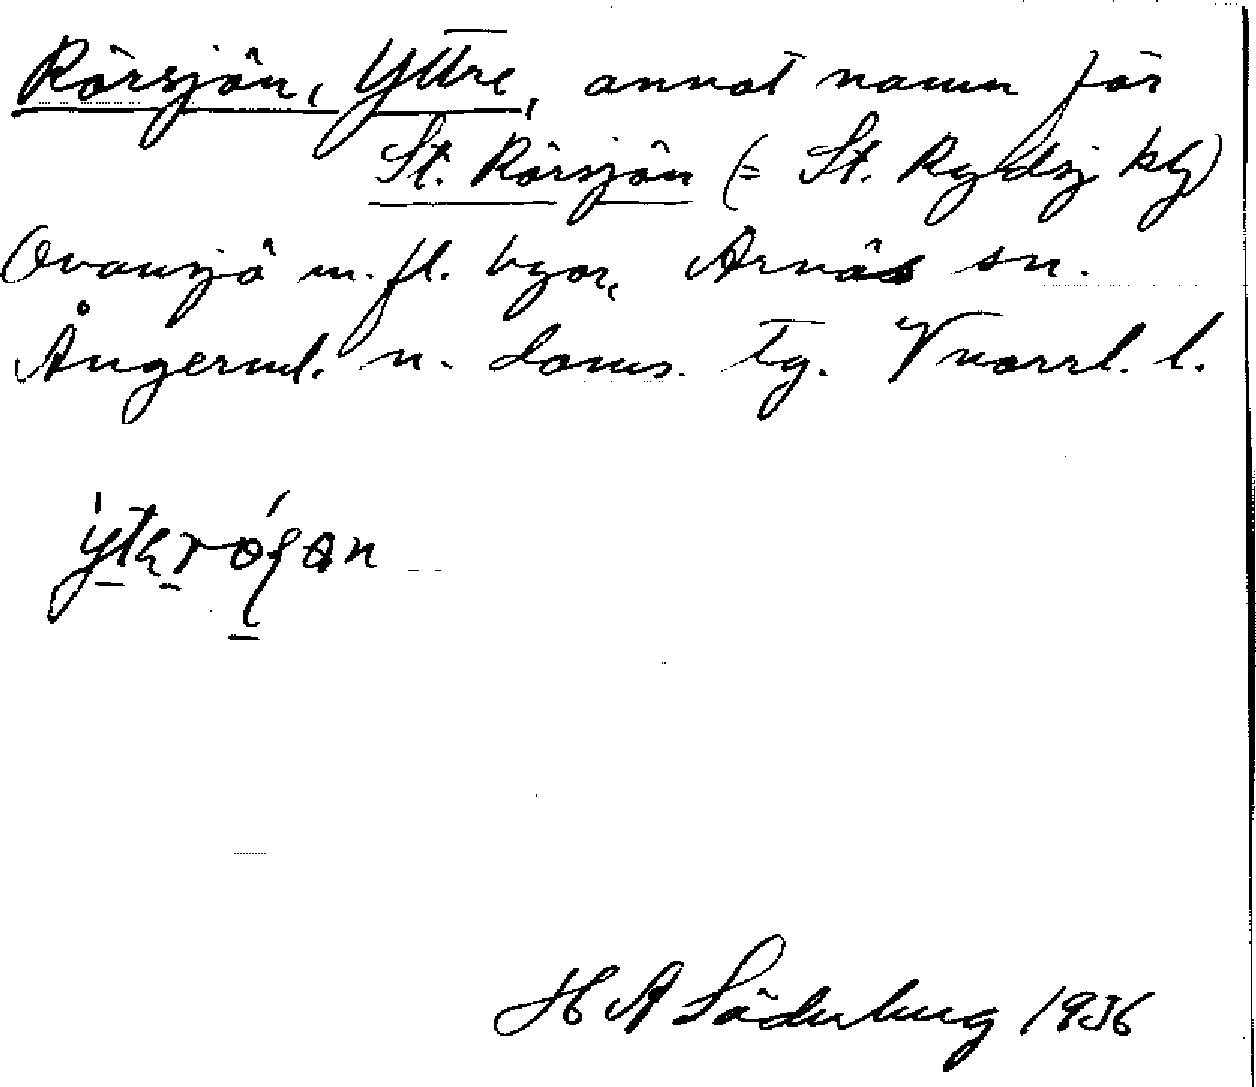 Rörsjön, Yttre, annat namn för
St. Rörsjön (= St. Rydsj kg)
Ovansjö m. fl. byar, Arnäs sn.
Ångerml. n. doms. tg. Vnorrl. l.
H A Söderberg 1936